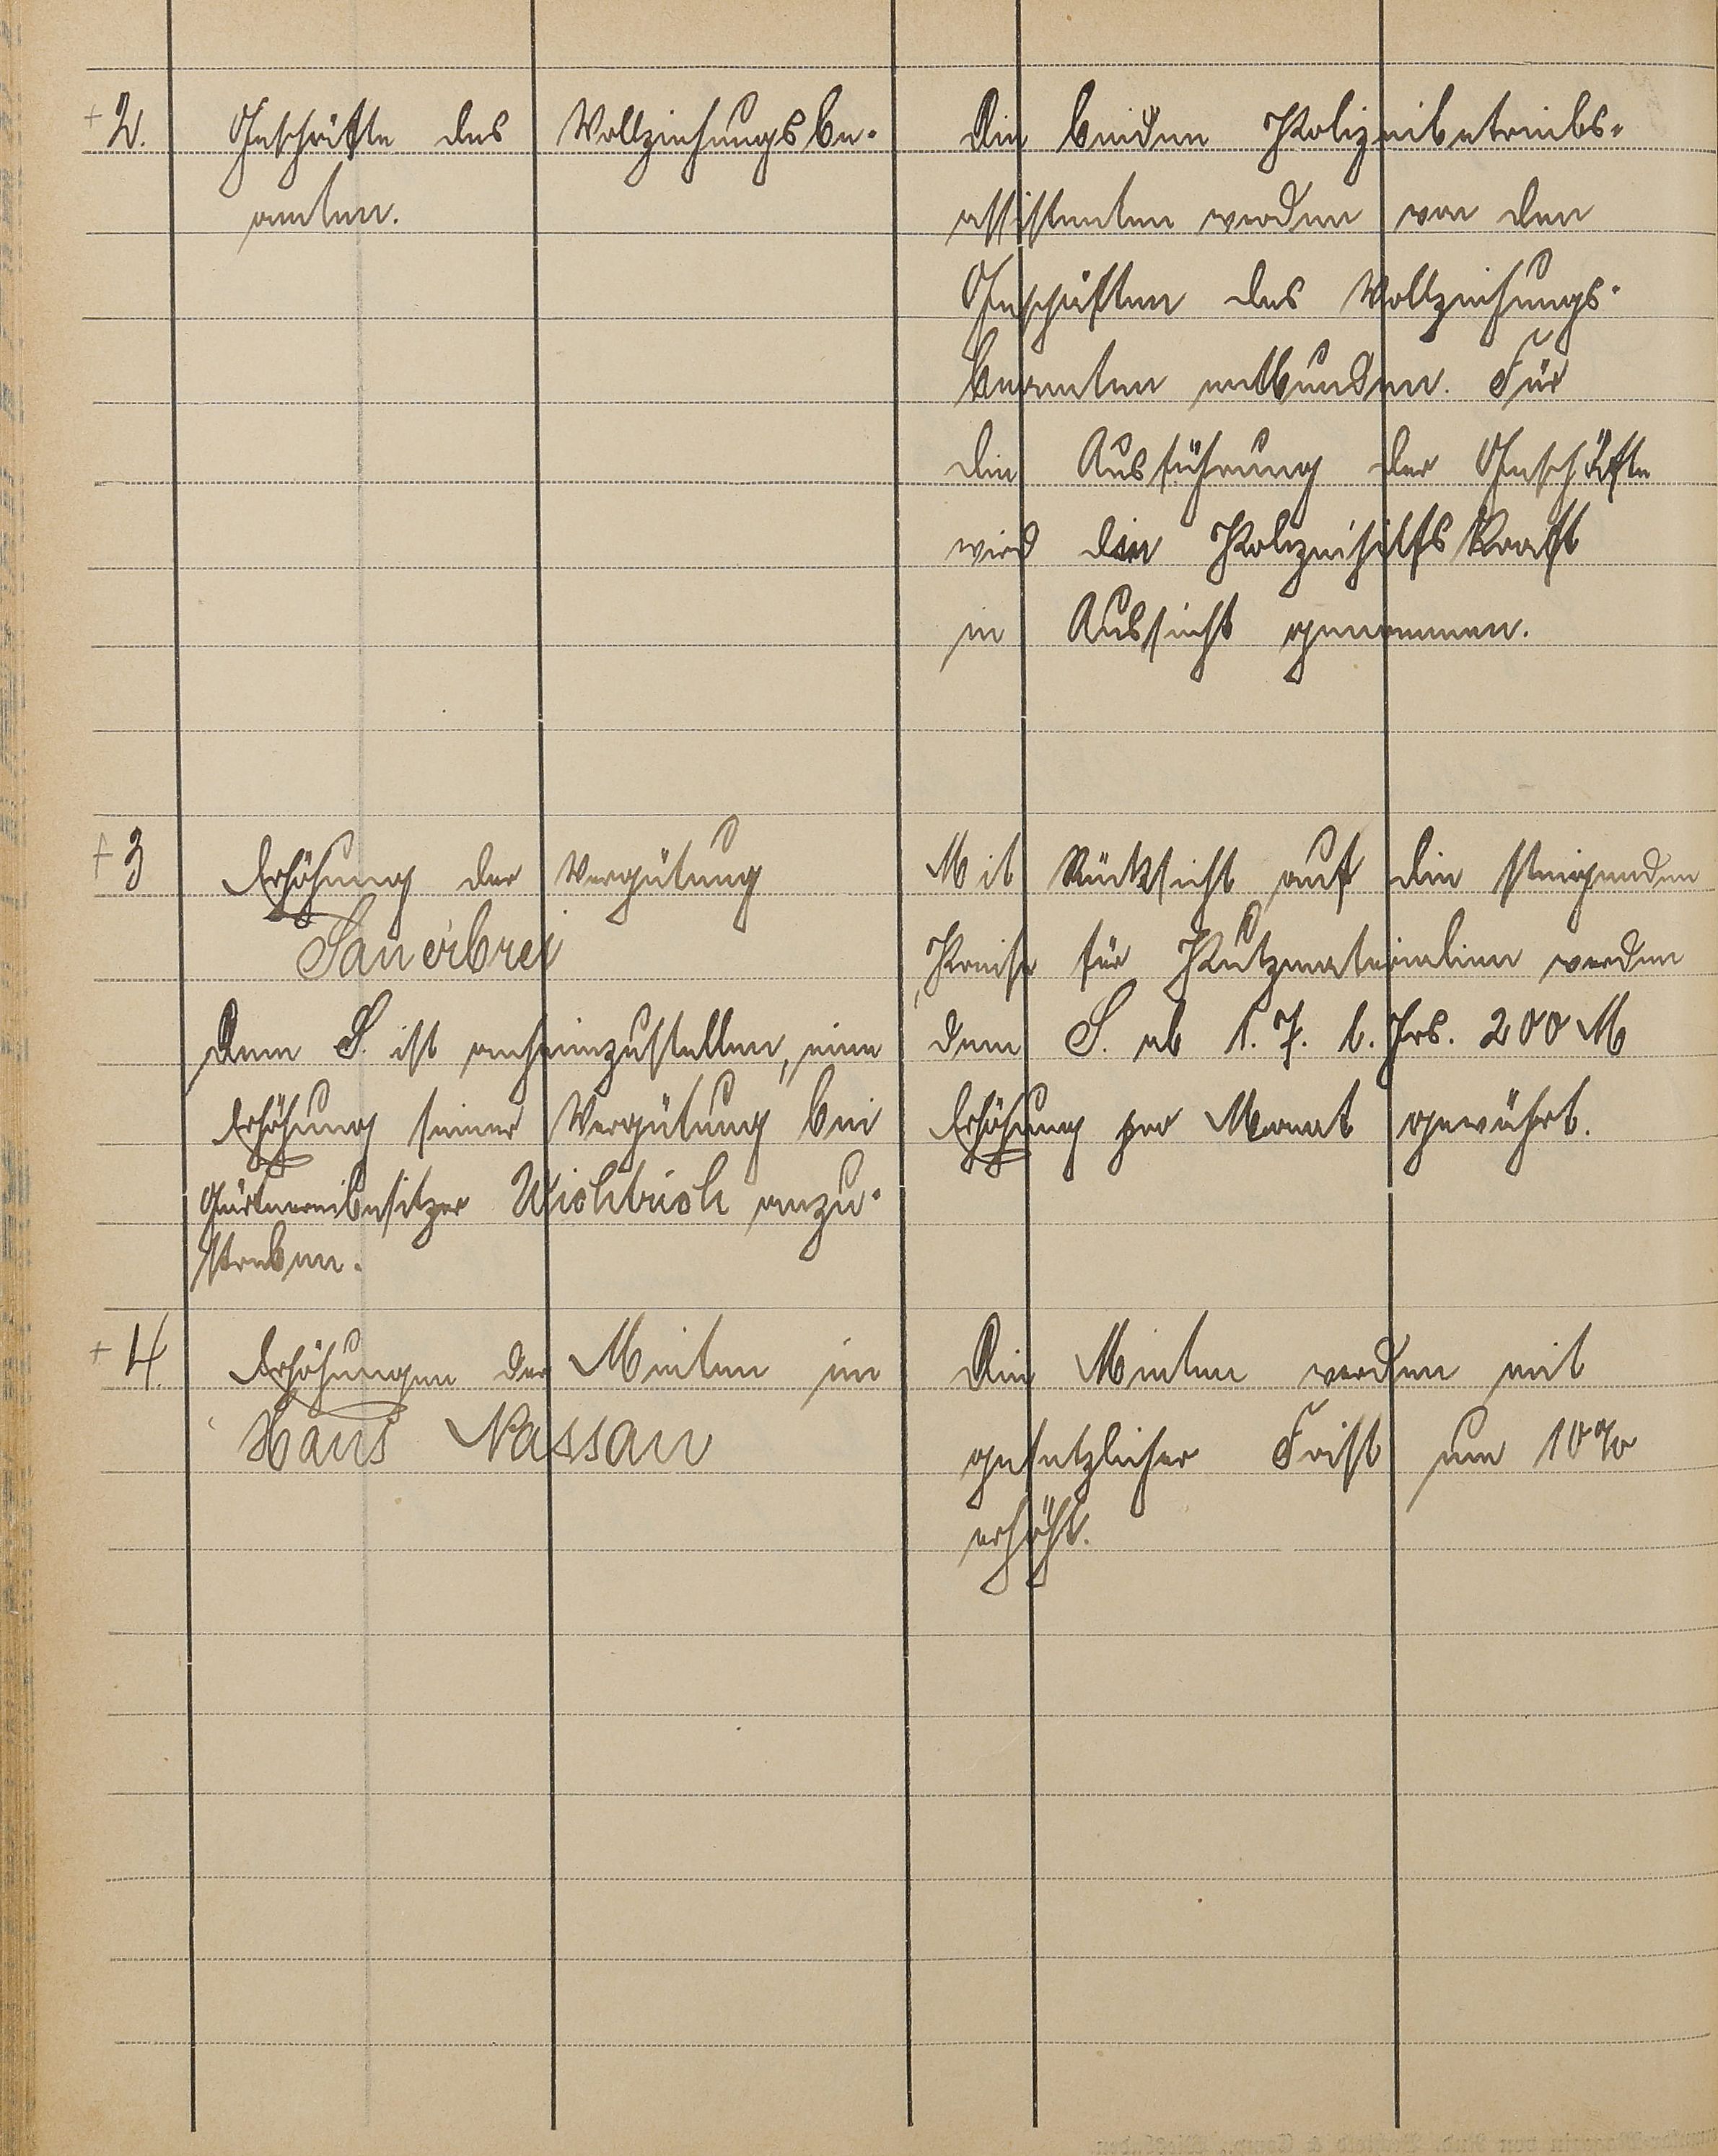 + 2.
Geschäfte des Vollziehungsbe-
amten.
Die beiden Polizeibetriebs-
assistenten werden von den
Geschäften des Vollziehungs-
beamten entbunden. Für
die Ausführung der Geschäfte
wird die Polizeihilfskraft
in Aussicht genommen.
+ 3
Erhöhung der Vergütung
Sauerbrei
Dem S. ist anheimzustellen, eine
Erhöhung seiner Vergütung bei
Gärtnereibesitzer Wichtrich anzu-
streben.
Mit Rücksicht auf die steigenden
Preise für Putzmaterialien werden
dem S. ab 1. 7. l. Jrs. 200 M
Erhöhung pro Monat gewährt.
+ 4.
Erhöhungen der Mieten im
Haus Nassau
Die Mieten werden mit
gesetzlicher Frist um 10%
erhöht.